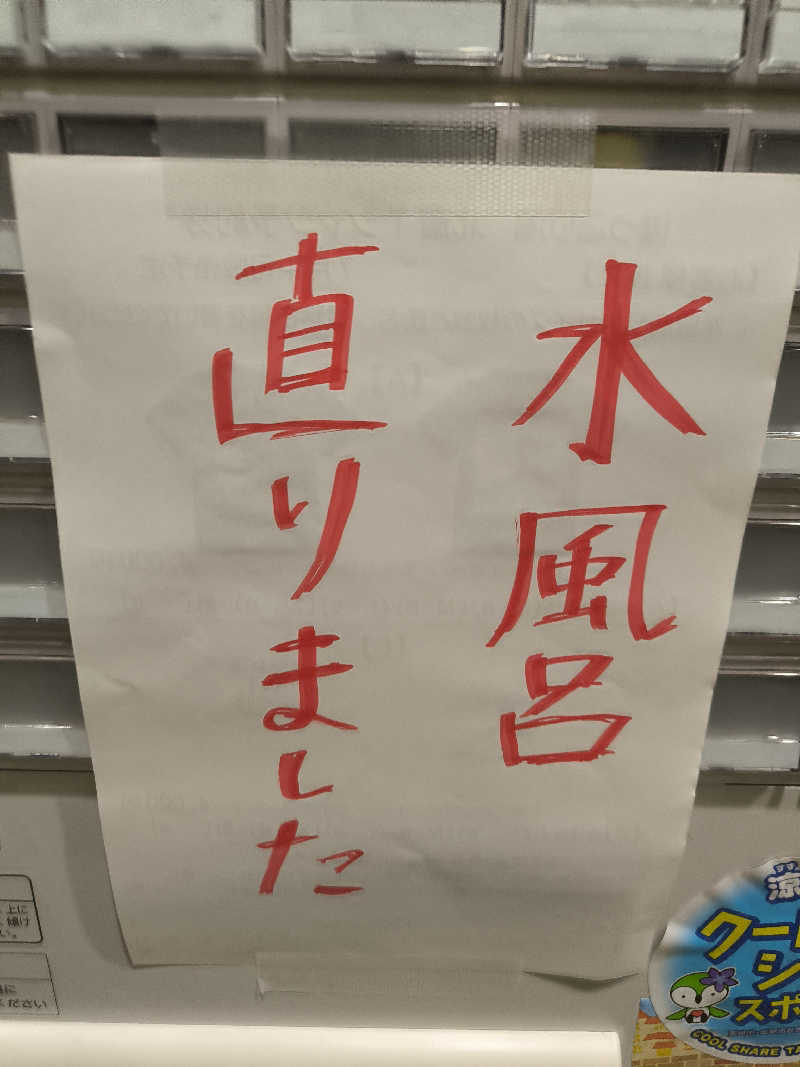 水風呂
直りました
上に
傾け
い。
に
ください
涼
クー
シ
スポ
COOL SHARE TA